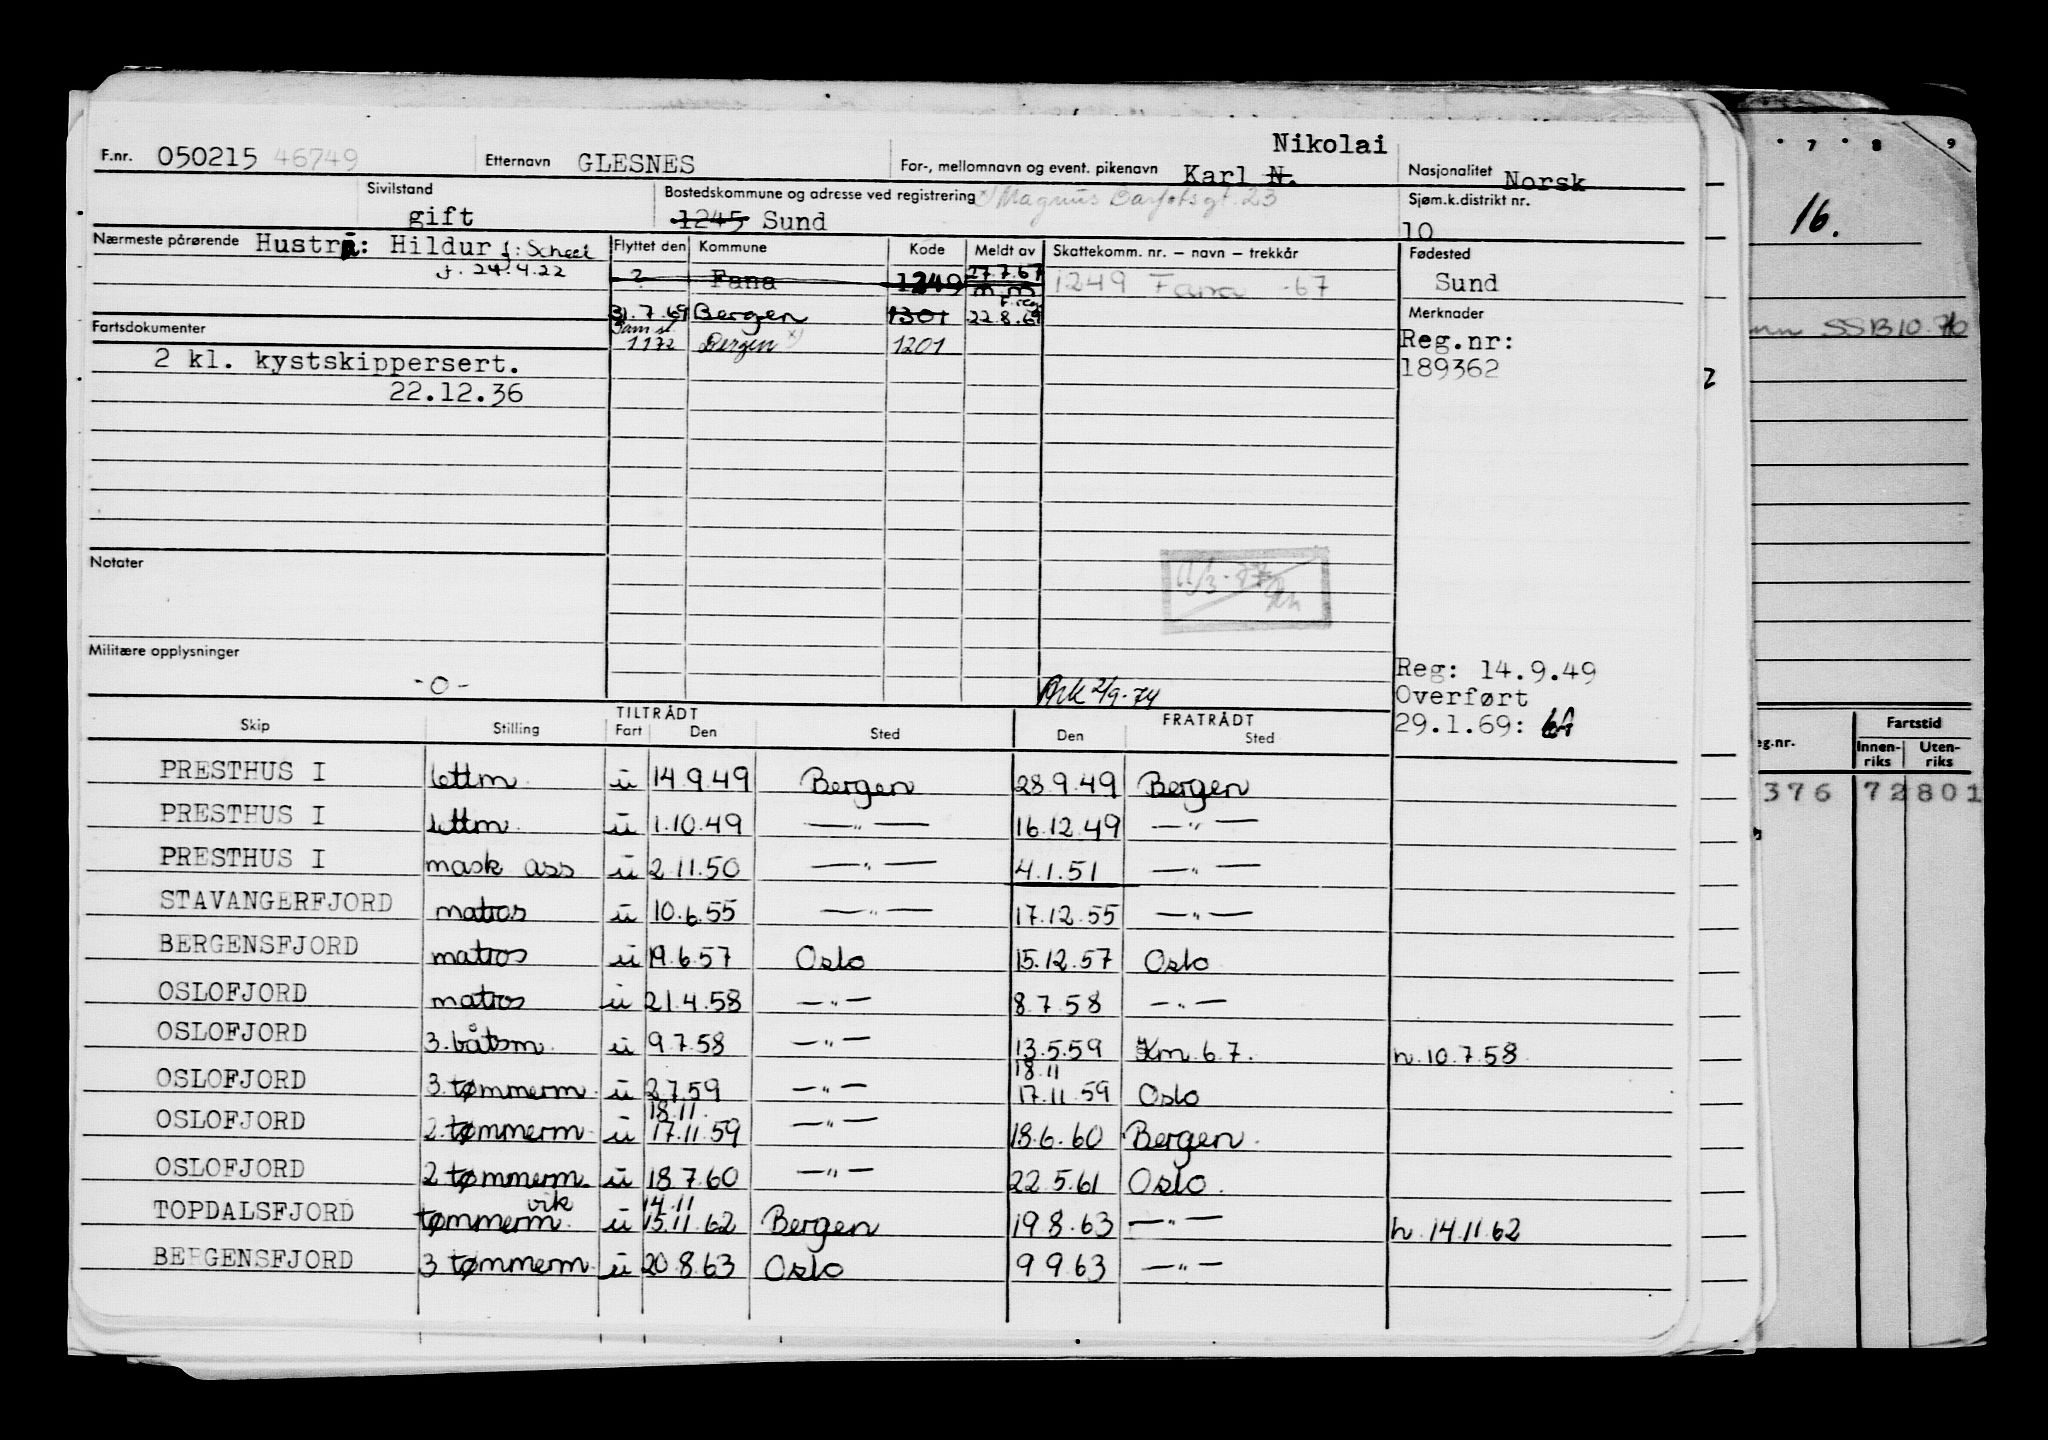 Nikolai
F.nr. 050215 46749 Etternavn GLESNES For-, mellomnavn og event. pikenavn Karl N. Nasjonalitet Norsk
Sivilstand gift Bostedskommune og adresse ved registrering x) Magnus Barfotsgt. 23 Sjøm.k.distrikt nr.
1245 Sund 10
Nærmeste pårørende Hustru: Hildur f: Scheel Flyttet den Kommune Kode Meldt av Skattekomm. nr. – navn – trekkår Fødested
f. 24.4.22 ? Fana 1249 27.7.67 1249 Fana -67 Sund
m.m
F.reg
31.7.69 Bergen 1301 22.8.69 Merknader
Fartsdokumenter 1172 Bergen x) 1201 Reg.nr:
2 kl. kystskippersert. 189362
22.12.36
Notater
Militære opplysninger
-0-
Reg: 14.9.49
Overført
29.1.69:
Ark 2/9-74
Skip Stilling TILTRÅDT Fart Den Sted FRATRÅDT Den Sted
PRESTHUS I lettm. u 14.9.49 Bergen 28.9.49 Bergen
PRESTHUS I lettm. u 1.10.49 —"— 16.12.49 —"—
PRESTHUS I mask ass u 2.11.50 —"— 4.1.51 —"—
STAVANGERFJORD matros u 10.6.55 —"— 17.12.55 —"—
BERGENSFJORD matros u 19.6.57 Oslo 15.12.57 Oslo
OSLOFJORD matros u 21.4.58 —"— 8.7.58 —"—
OSLOFJORD 3.båtsm. u 9.7.58 —"— 13.5.59 Km. 6.7. h. 10.7.58
18.11
OSLOFJORD 3.tømmerm. u 2.7.59 —"— 17.11.59 Oslo
18.11.
OSLOFJORD 2.tømmerm. u 17.11.59 —"— 18.6.60 Bergen.
OSLOFJORD 2 tømmerm. u 18.7.60 —"— 22.5.61 Oslo.
vik 14.11
TOPDALSFJORD tømmerm. u 15.11.62 Bergen 19.8.63 —"— h. 14.11.62
BERGENSFJORD 3 tømmerm. u 20.8.63 Oslo 9 9.63 —"—
7 8 9
16.
SSB 10.
2
Fartstid
Innen-riks Uten-riks
376 72 801